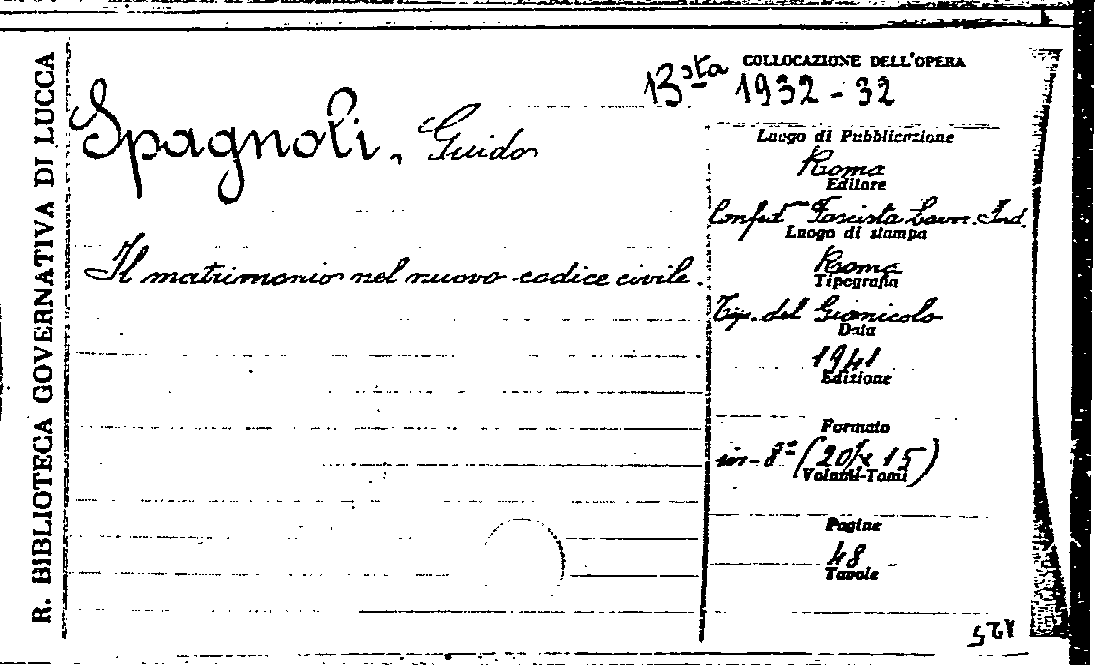 R. BIBLIOTECA GOVERNATIVA DI LUCCA
Spagnoli, Guido
Il matrimonio nel nuovo codice civile.
COLLOCAZIONE DELL'OPERA
Bsta 1932-32
Luogo di Pubblicazione
Roma
Editore
Fascista Lavor. Ind.
Luogo di stampa
Roma
Tipografia
Tip. del Gianicolo
Data
1941
Edizione
Formato
in-8° (20 x 15)
Volumi-Tomi
Pagine
48
Tavole